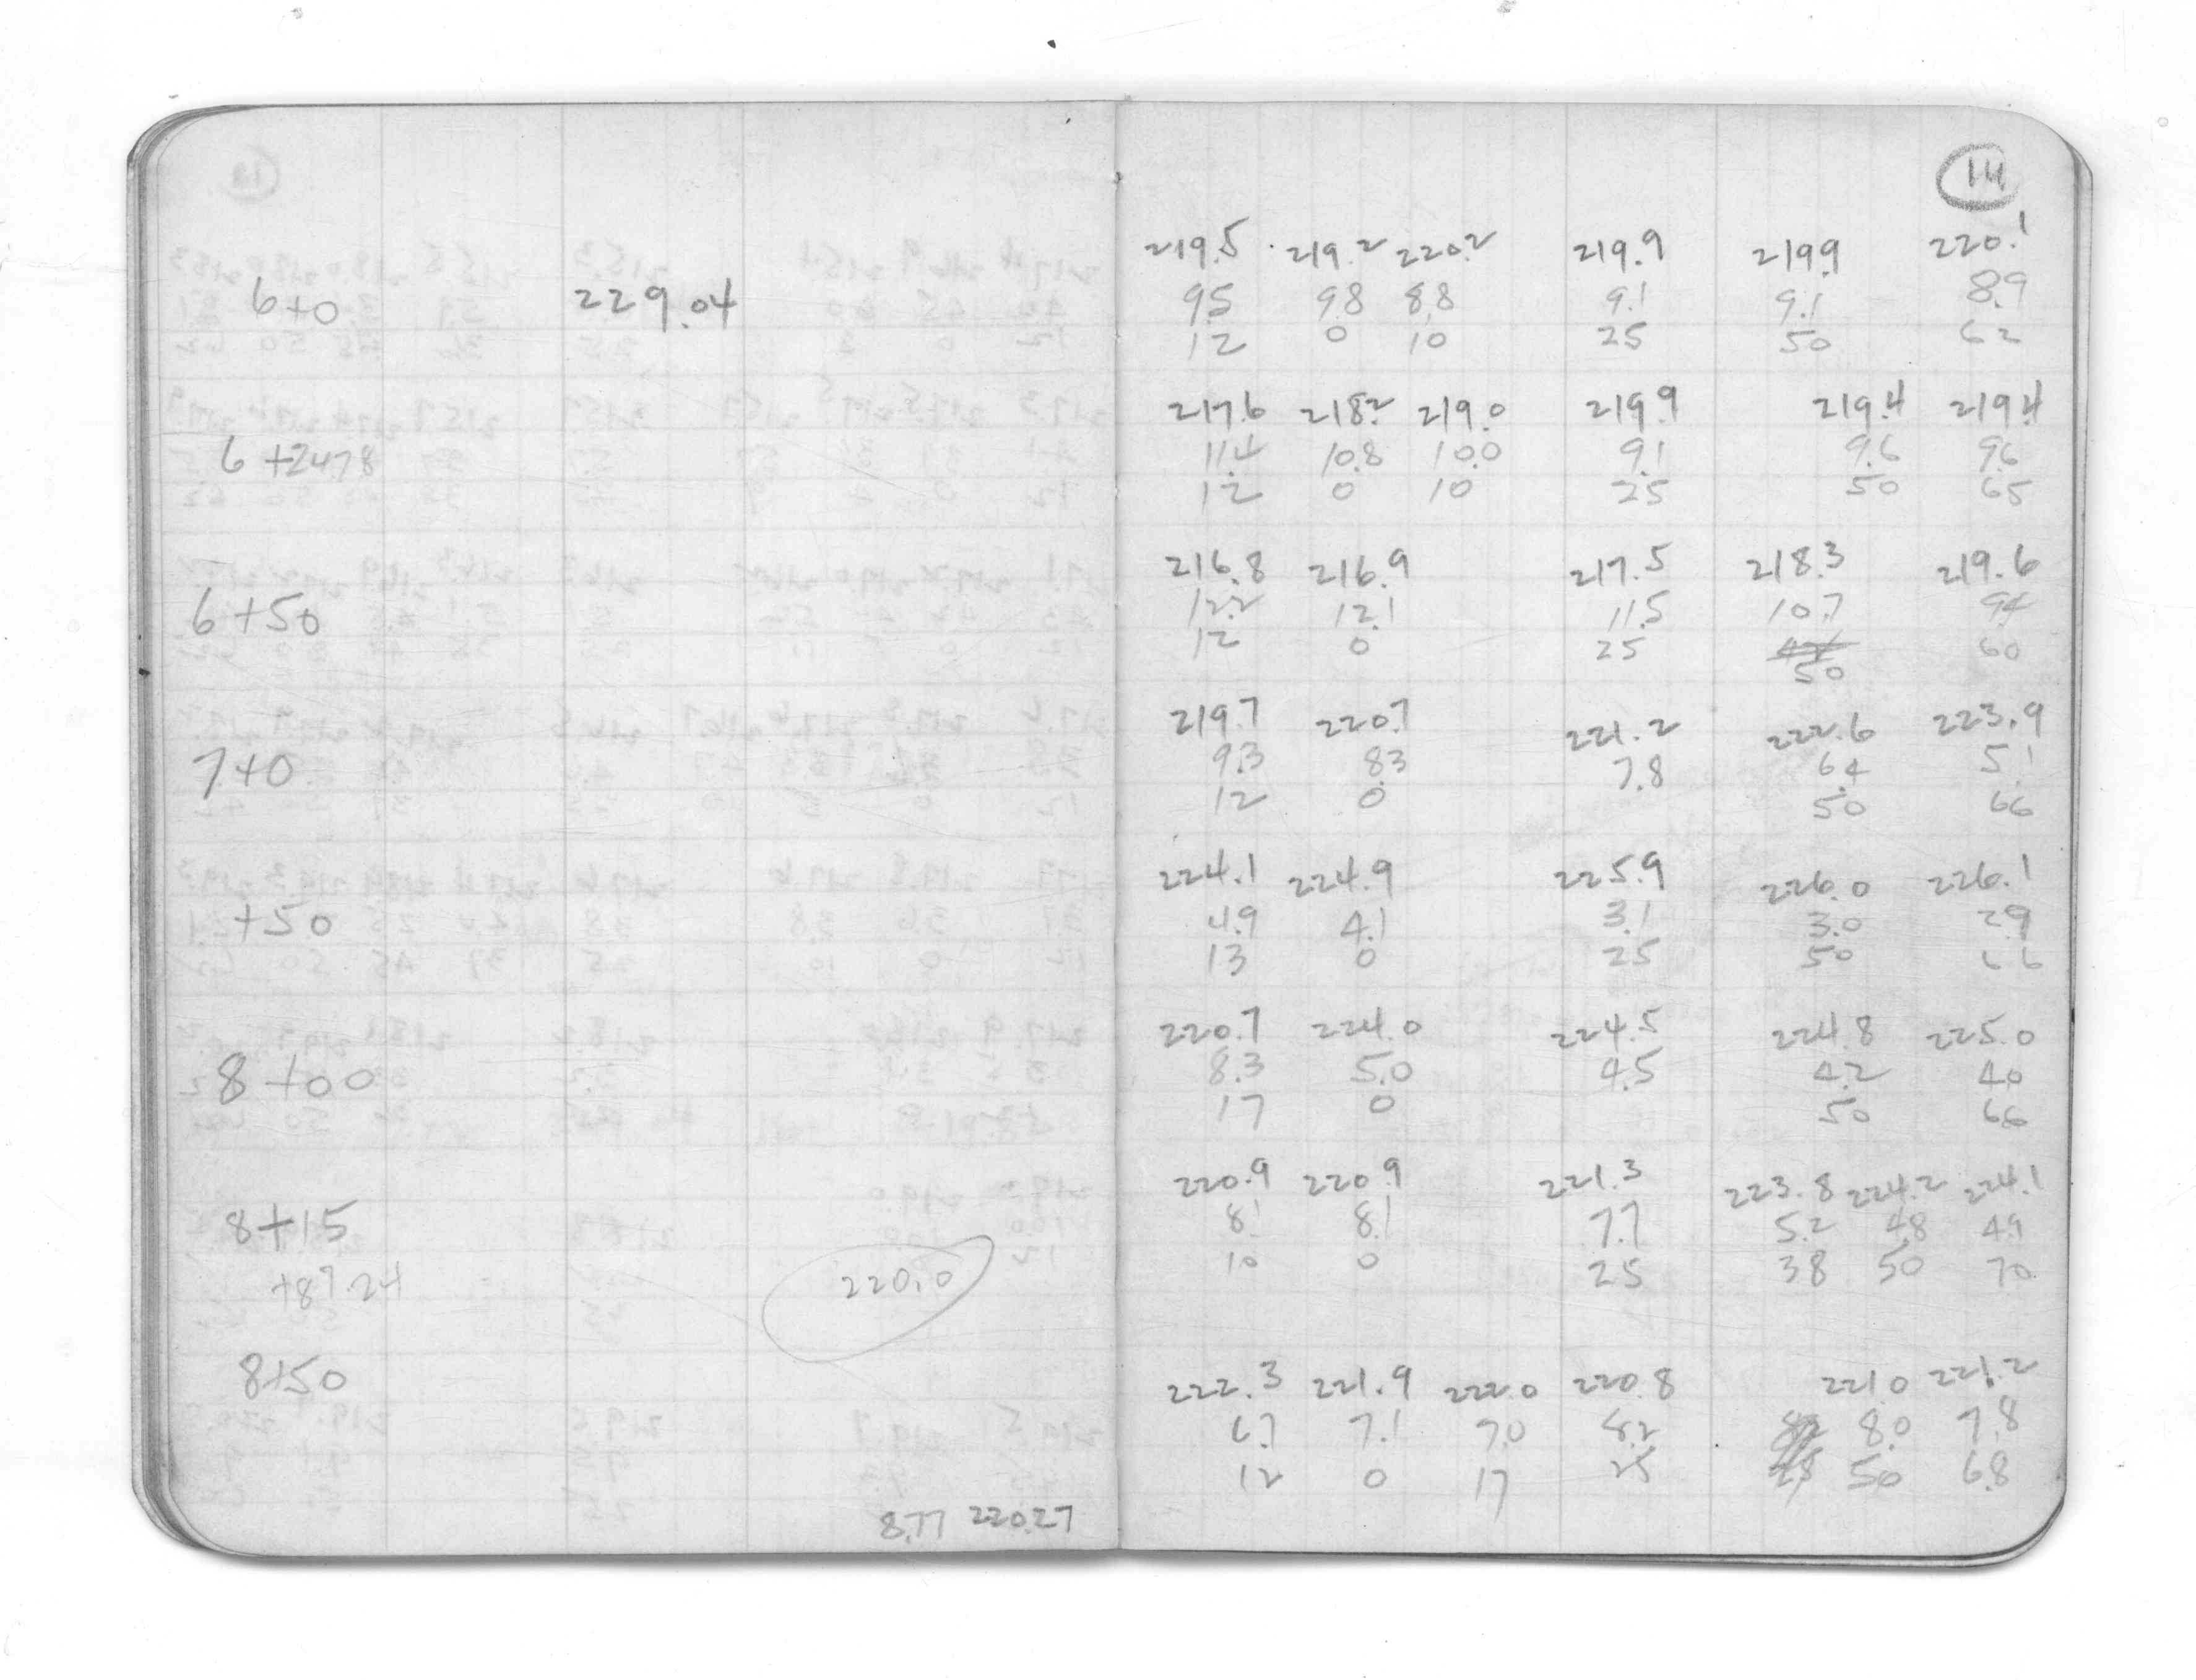 14
219.5 219.2 220.2 219.9 219.9 220.1
6+0 229.04 9.5 9.8 8.8 9.1 9.1 8.9
12 0 10 25 50 62
217.6 218.2 219.0 219.9 219.4 219.4
6+24.78 11.4 10.8 10.0 9.1 9.6 9.6
12 0 10 25 50 65
216.8 216.9 217.5 218.3 219.6
6+50 12.2 12.1 11.5 10.7 9.4
12 0 25 60
50
219.7 220.7 221.2 222.6 223.9
7+0 9.3 8.3 7.8 6.4 5.1
12 0 50 66
224.1 224.9 225.9 226.0 226.1
+50 4.9 4.1 3.1 3.0 2.9
13 0 25 50 66
220.7 224.0 224.5 224.8 225.0
8+00 8.3 5.0 4.5 4.2 4.0
17 0 50 66
220.9 220.9 221.3 223.8 224.2 224.1
8+15 8.1 8.1 7.7 5.2 4.8 4.9
+87.24 220.0 10 0 25 38 50 70
8+50 222.3 221.9 222.0 220.8 221.0 221.2
6.7 7.1 7.0 8.2 8.0 7.8
12 0 17 25 50 68
8.77 220.27